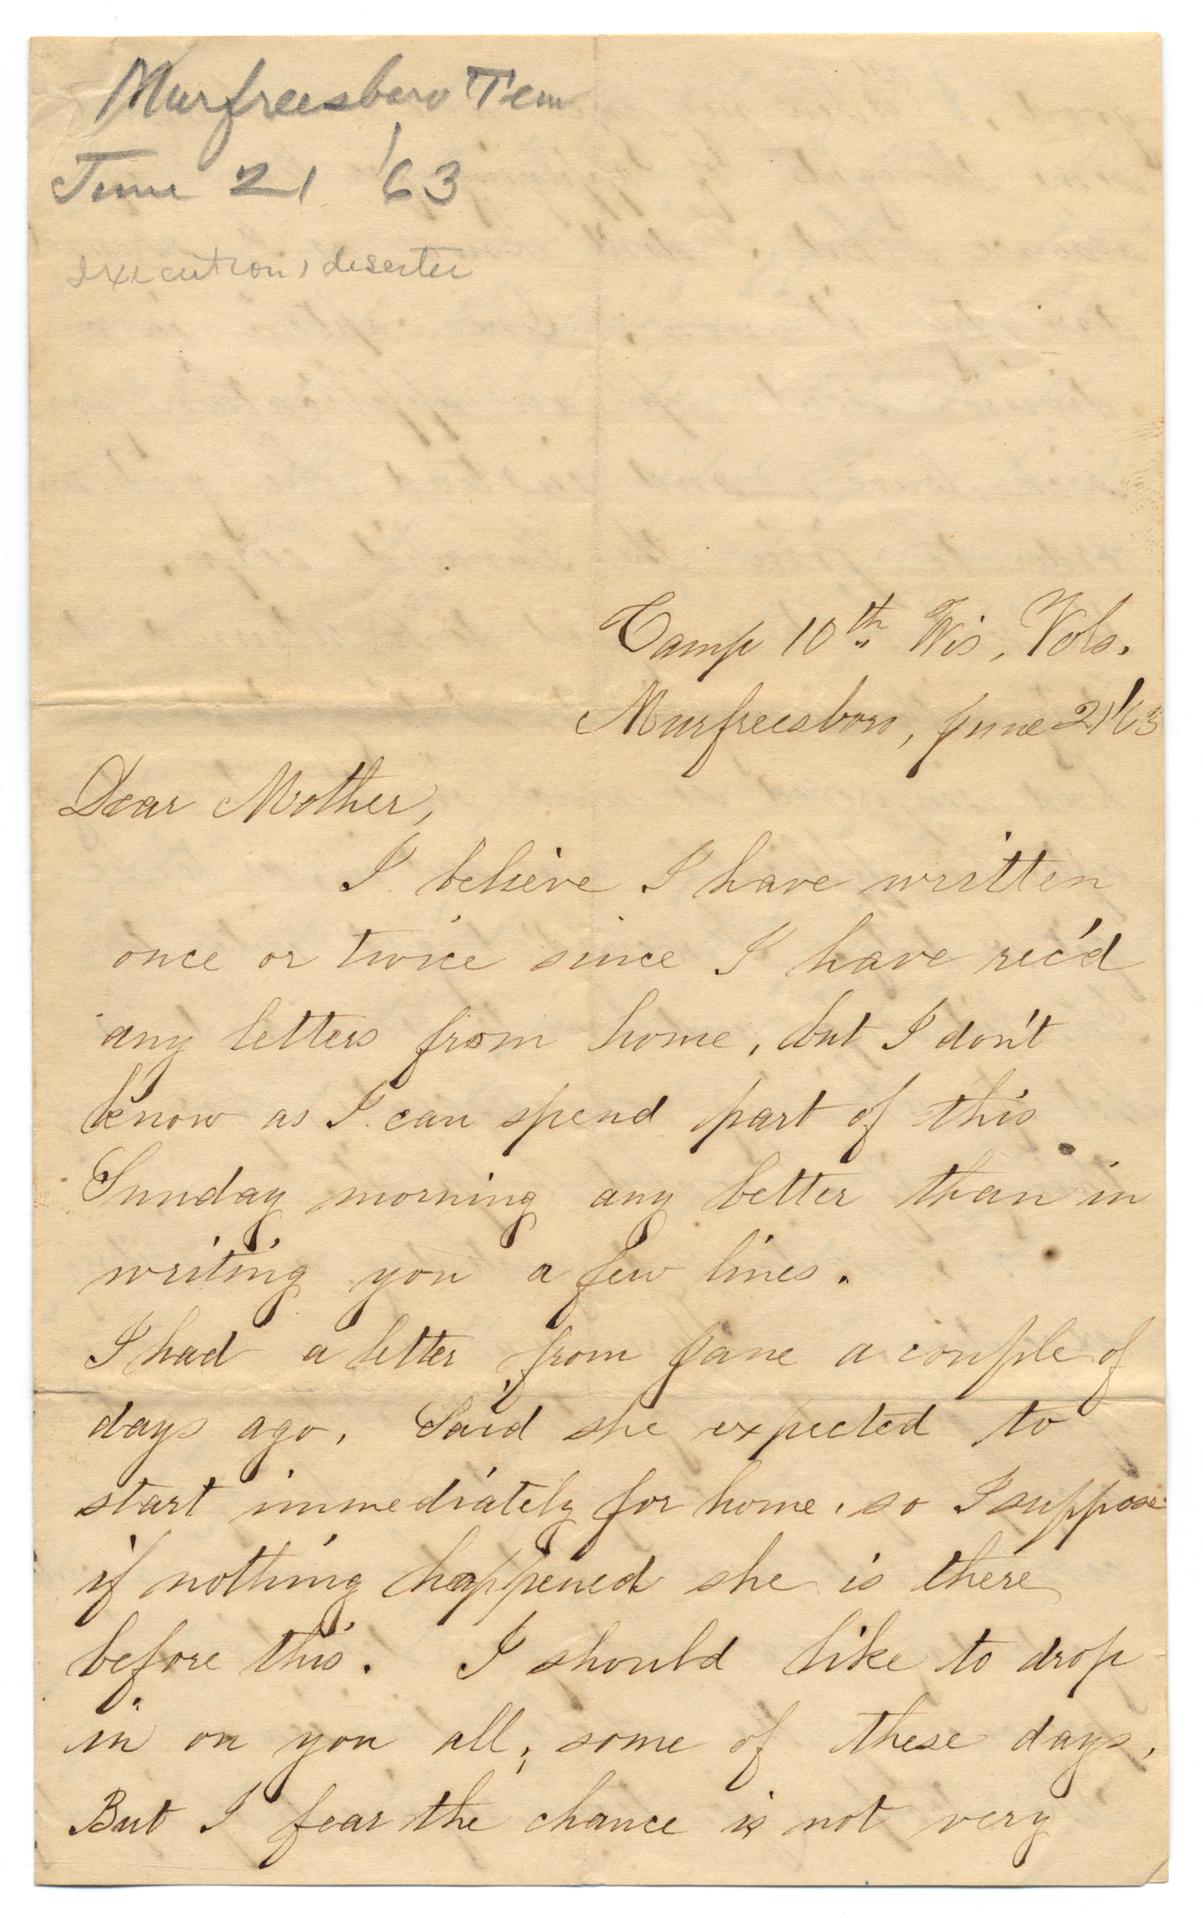 Murfreesboro Tenn
June 21 '63
execution, deserter
Camp 10th Wis, Vols.
Murfreesboro, June 21 '63
Dear Mother,
I believe I have written
once or twice since I have rec'd
any letters from home, but I don't
know as I can spend part of this
Sunday morning any better than in
writing you a few lines.
I had a letter from Jane a couple of
days ago. Said she expected to
start immediately for home. so I suppose
if nothing happened she is there
before this. I should like to drop
in on you all, some of these days,
But I fear the chance is not very